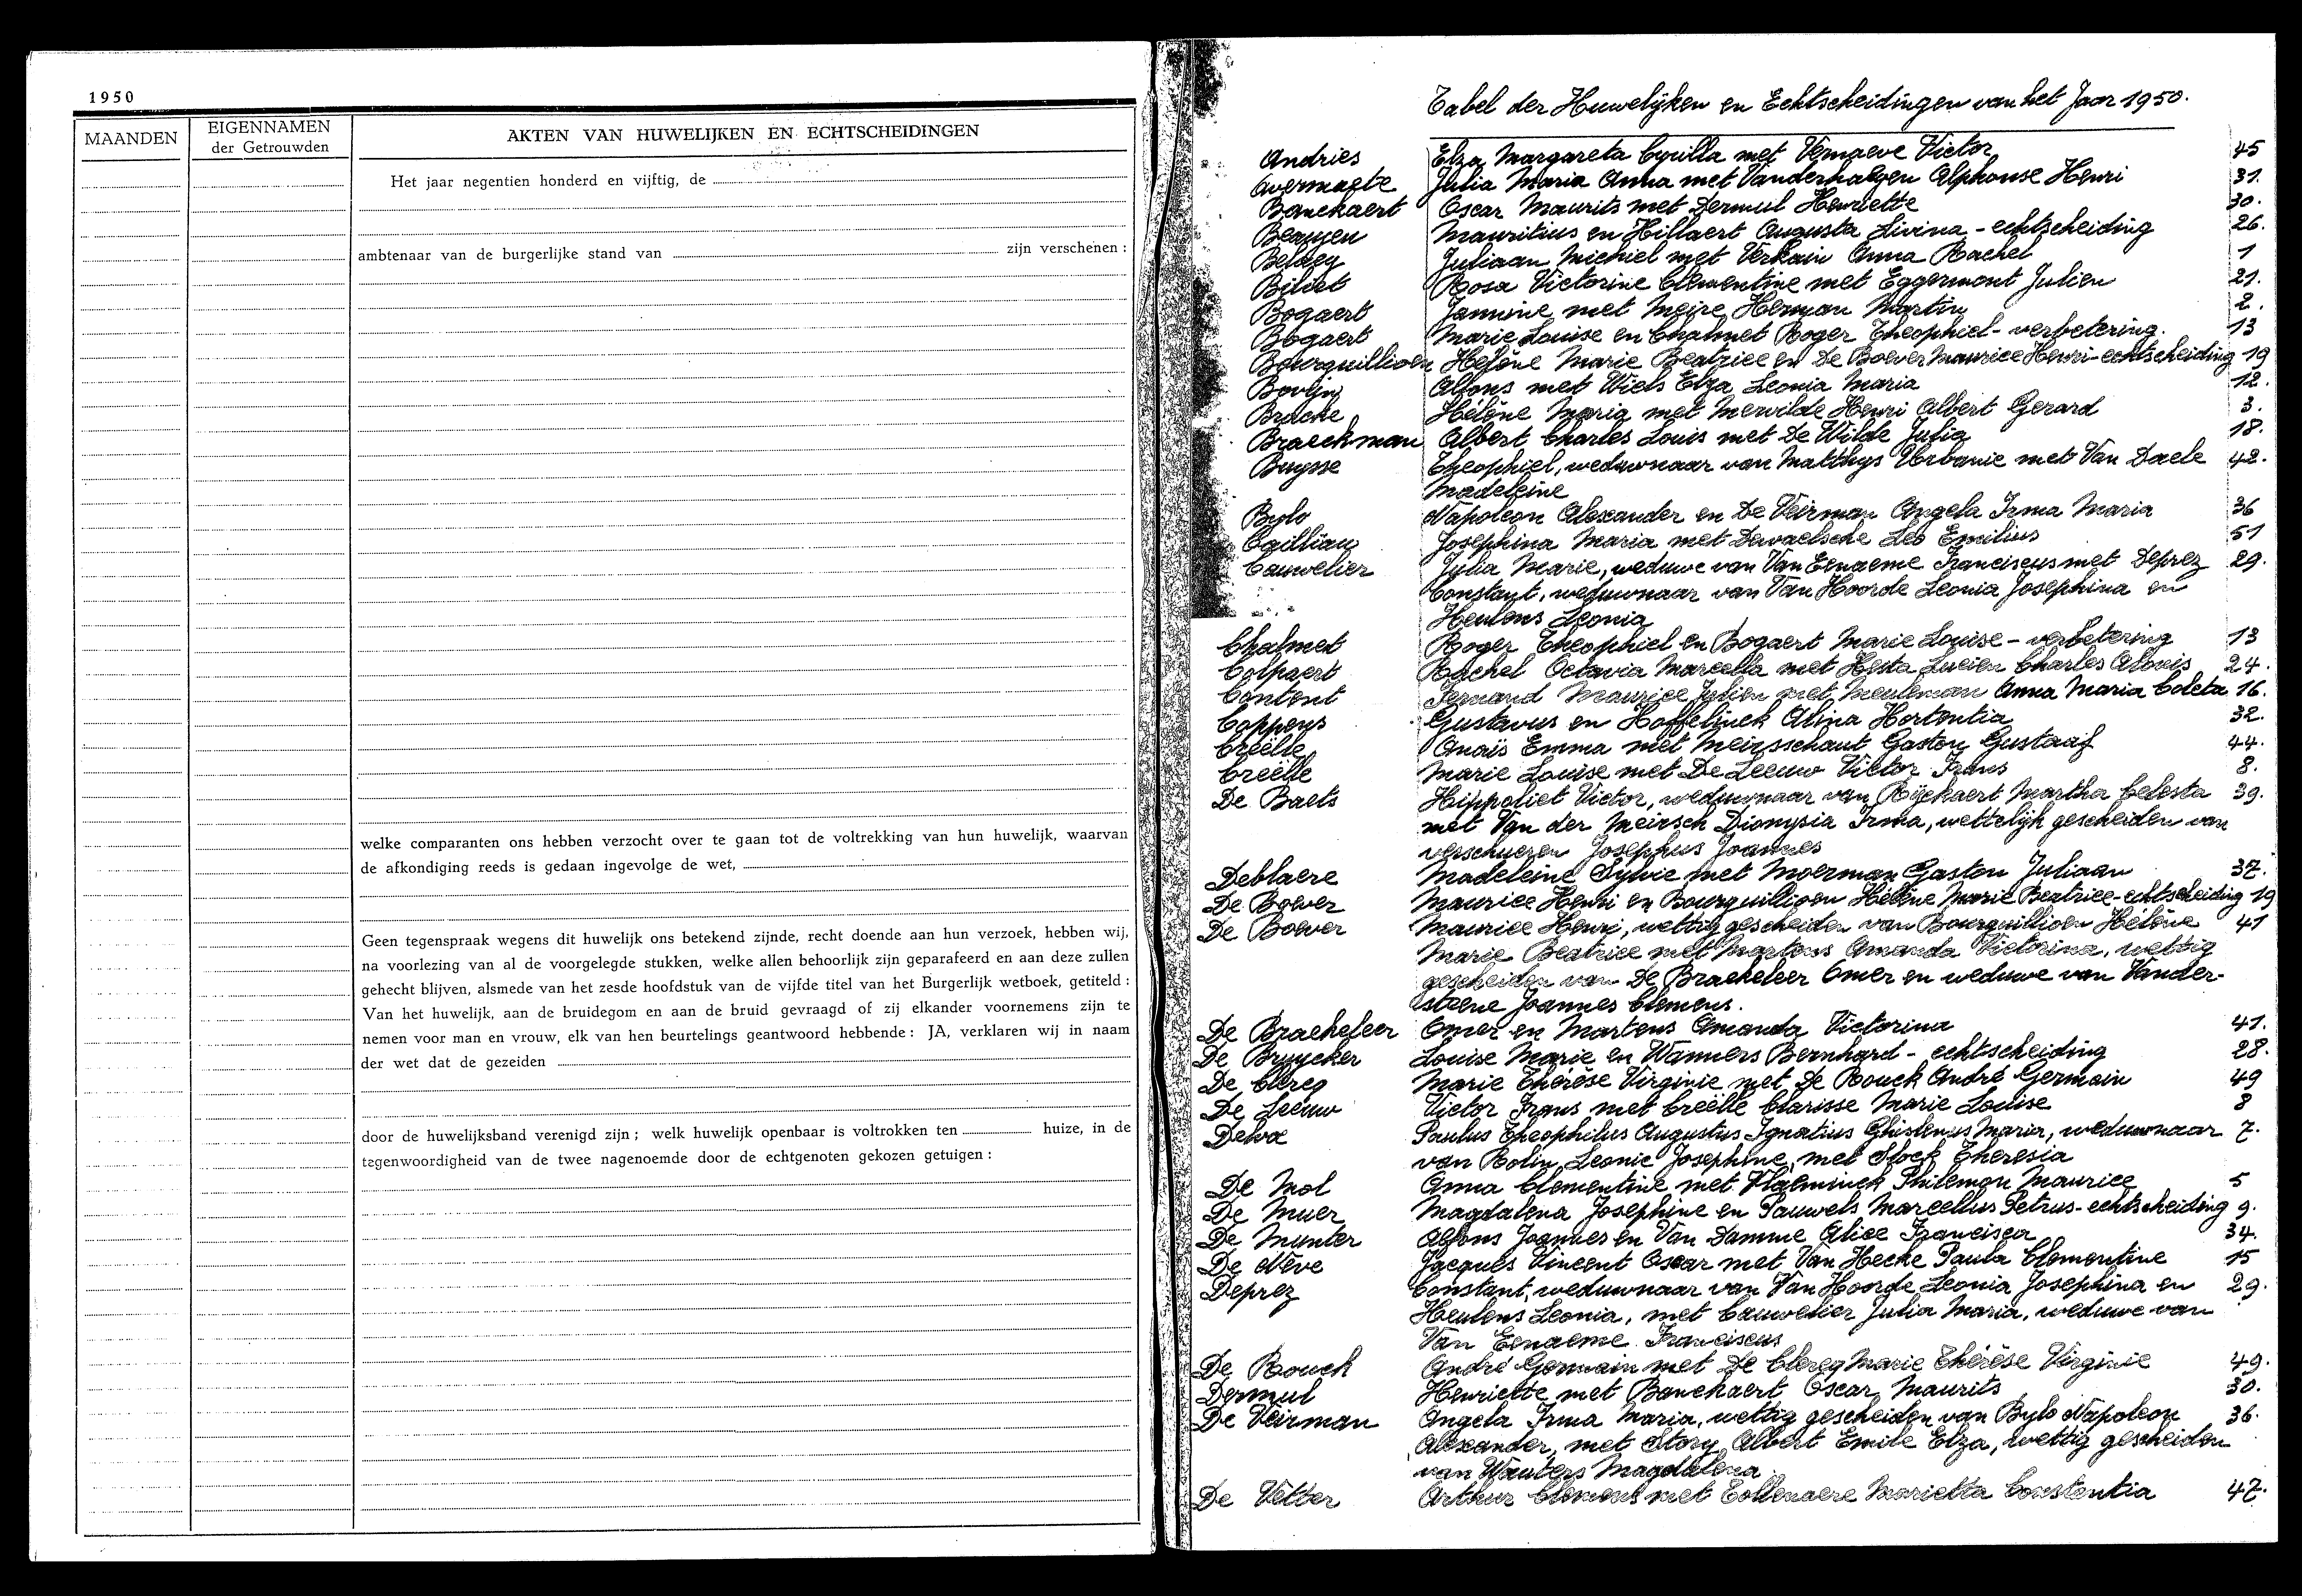 1950
MAANDEN
EIGENNAMEN
der Getrouwden
AKTEN VAN HUWELIJKEN EN ECHTSCHEIDINGEN
Het jaar negentien honderd en vijftig, de
ambtenaar van de burgerlijke stand van zijn verschenen :
welke comparanten ons hebben verzocht over te gaan tot de voltrekking van hun huwelijk, waarvan
de afkondiging reeds is gedaan ingevolge de wet,
Geen tegenspraak wegens dit huwelijk ons betekend zijnde, recht doende aan hun verzoek, hebben wij,
na voorlezing van al de voorgelegde stukken, welke allen behoorlijk zijn geparafeerd en aan deze zullen
gehecht blijven, alsmede van het zesde hoofdstuk van de vijfde titel van het Burgerlijk wetboek, getiteld :
Van het huwelijk, aan de bruidegom en aan de bruid gevraagd of zij elkander voornemens zijn te
nemen voor man en vrouw, elk van hen beurtelings geantwoord hebbende : JA, verklaren wij in naam
der wet dat de gezeiden
door de huwelijksband verenigd zijn ; welk huwelijk openbaar is voltrokken ten huize, in de
tegenwoordigheid van de twee nagenoemde door de echtgenoten gekozen getuigen :
Tabel der Huwelijken en Echtscheidingen van het Jaar 1950.
Andries Elza Margareta Cyrilla met Vernaeve Victor 45
Avermaete Julia Maria Anna met Vanderhaegen Alphonse Henri 31.
Banckaert Oscar Maurits met Dermul Henriette 30.
Beaujen Mauritius en Hillaert Augusta Livina - echtscheiding 26.
Belaey Juliaan Michiel met Verkain Anna Rachel 1
Biliet Rosa Victorine Clementine met Eggermont Julien 21.
Bogaert Jannine met Meire Herman Martin 2.
Bogaert Marie Louise en Chalmet Roger Theophiel - verbetering. 13
Bourquillioen Hélène Marie Beatrice en De Boever Maurice Henri - echtscheiding 19
Bovijn Alfons met Wiels Elza Leonia Maria 12.
Bracke Hélène Maria met Mervilde Henri Albert Gerard 3.
Braeckman Albert Charles Louis met De Wilde Julia 18.
Buysse Theophiel, weduwnaar van Matthys Urbanie met Van Daele 42.
Madeleine
Bylo Napoleon Alexander en De Veirman Angela Irma Maria 36
Cailliau Josephina Maria met Dewaelsche Leo Emilius 51
Cauwelier Julia Marie, weduwe van Van Eenaeme Franciscus met Deprez 29.
Constant, weduwnaar van Van Hoorde Leonia Josephina en
Heulens Leonia
Chalmet Roger Theophiel en Bogaert Marie Louise - verbetering 13
Colpaert Rachel Octavia Marcella met Hesta Lucien Charles Alouis 24.
Content Fernand Maurice Julien met Meuleman Anna Maria Coleta 16.
Coppens Gustavus en Hoffelinck Alina Hortentia 32.
Creëlle Anaïs Emma met Meirsschaut Gaston Gustaaf 44.
Creëlle Marie Louise met De Leeuw Victor Frans 8.
De Baets Hippoliet Victor, weduwnaar van Rijckaert Martha Celesta 39.
met Van der Meirsch Dionysia Irma, wettelijk gescheiden van
Verschueren Josephus Joannes
Deblaere Madeleine Sylvie met Moerman Gaston Juliaan 37.
De Boever Maurice Henri en Bourquillioen Hélène Marie Beatrice - echtscheiding 19
De Boever Maurice Henri, wettig gescheiden van Bourquillioen Hélène 41
Marie Beatrice met Martens Amanda Victorina, wettig
gescheiden van De Braekeleer Omer en weduwe van Vander-
steene Joannes Clemens.
De Braekeleer Omer en Martens Amanda Victorina 41.
De Bruycker Louise Marie en Wanners Bernhard - echtscheiding 28.
De Clercq Marie Thérèse Virginie met De Rouck André Germain 49
De Leeuw Victor Frans met Creëlle Clarisse Marie Louise 8
Delva Paulus Theophilus Augustus Ignatius Ghislenus Maria, weduwnaar 7.
van Rolin Leonie Josephine, met Stock Theresia
De Mol Anna Clementine met Vlaeminck Philemon Maurice 5
De Muer Magdalena Josephine en Pauwels Marcellus Petrus - echtscheiding 9.
De Munter Alfons Joannes en Van Damme Alice Francisca 34.
De Neve Jacques Vincent Oscar met Van Hecke Paula Clementine 15
Deprez Constant, weduwnaar van Van Hoorde Leonia Josephina en 29.
Heulens Leonia, met Cauwelier Julia Maria, weduwe van
Van Eenaeme Franciscus
De Rouck André Germain met De Clercq Marie Thérèse Virginie 49.
Dermul Henriette met Banckaert Oscar Maurits 30.
De Veirman Angela Irma Maria, wettig gescheiden van Bylo Napoleon 36.
Alexander, met Story Albert Emile Elza, wettig gescheiden
van Wauters Magdalena.
De Vetter Arthur Clemens met Eollenaere Marietta Constantia 47.